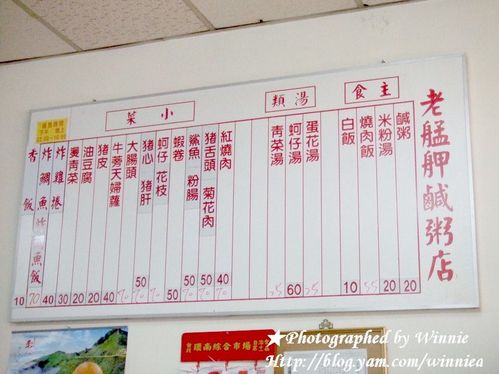 老艋舺鹹粥店
主食
鹹粥 20
米粉湯 20
燒肉飯 55
白飯 10
湯類
蛋花湯 35
蚵仔湯 60
青菜湯 35
小菜
紅燒肉 40
豬舌頭 菊花肉 50
鯊魚 粉腸 50
蝦卷 50
蚵仔 花枝
豬心 豬肝 50
大腸頭
牛蒡天婦羅
豬皮 40
油豆腐 20
燙青菜 20
炸雞捲 30
炸 40
魚飯 70
香 飯 10
環南綜合市場
★Photographed by Winnie
Http://blog.yam.com/winniea